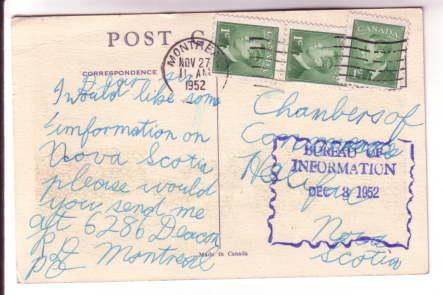 POST C
CORRESPONDENCE
MONTRE
NOV 27
11 AM
1952
CANADA
Dear Sir
I would like some
imformation on
Nova Scotia
please would
you send me
at 6286 Deacon
Rd Montreal
P.Q
Chambers of
Commerce
Halifax
Nova
Scotia
BUREAU OF
INFORMATION
DEC 3 1952
Made in Canada